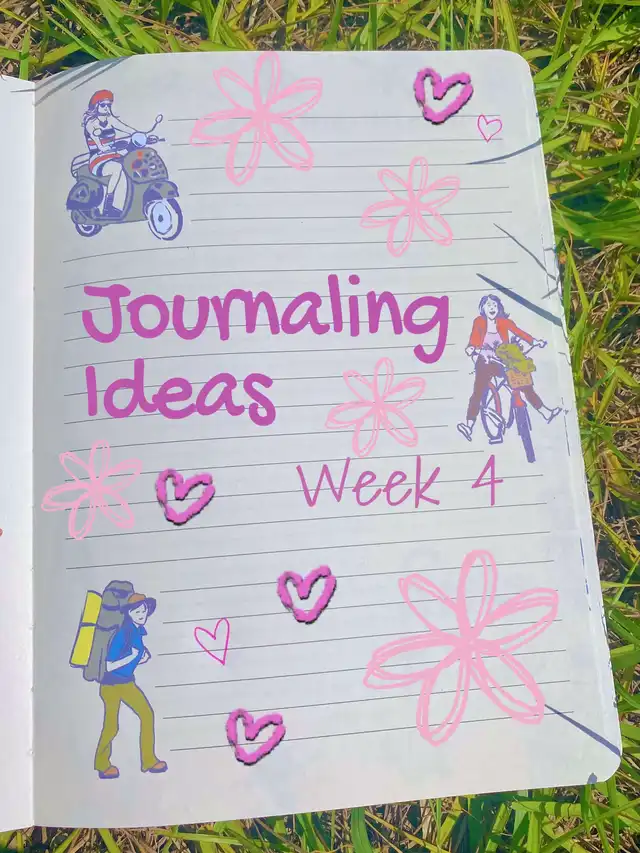 Journaling
Ideas
Week 4